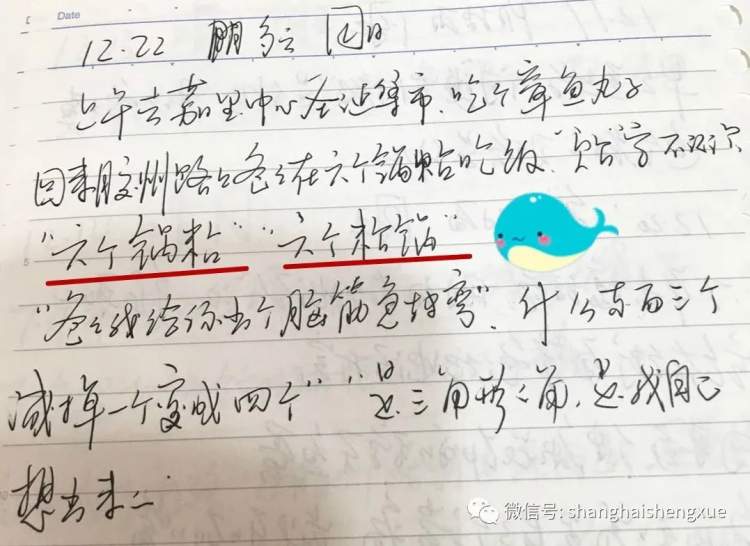 Date
12.22 鹏 四
上午去荔里中心 逛集市.吃个章鱼丸子
回来胶州路上爸爸在六个锅粘吃饭."贴"字不认识
"六个锅粘" "六个粘锅"
"爸爸我给你出个脑筋急转弯".什么东西三个
减掉一个变成四个" "是三角形 角.是我自己
想出来
微信号: shanghaishengxue